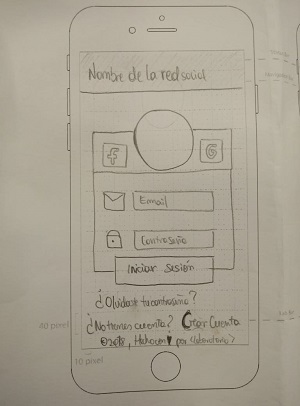 Nombre de la red social
f
G
Email
Contraseña
Iniciar sesión
¿Olvidaste tu contraseña?
¿No tienes cuenta? Crear Cuenta
por
40 pixel
10 pixel